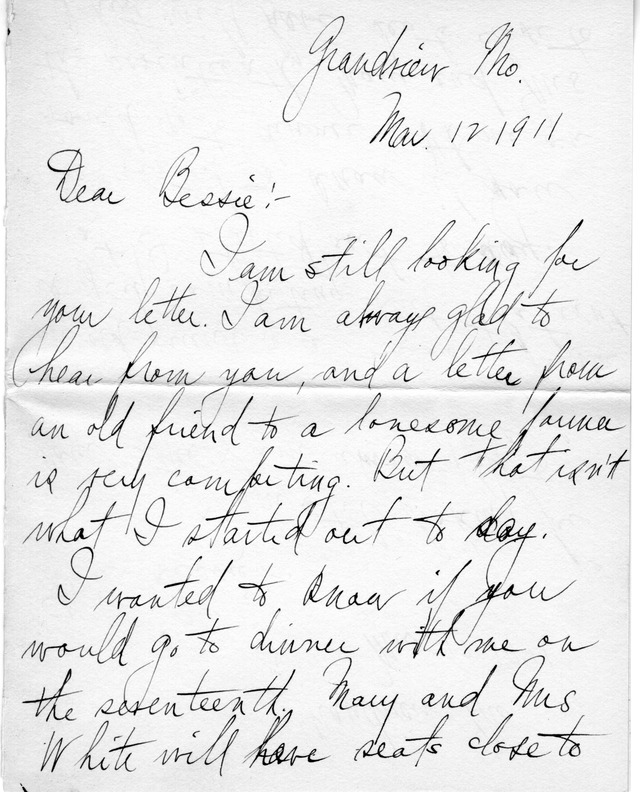 Grandview Mo.
Mar. 12 1911
Dear Bessie:-
I am still looking for
your letter. I am always glad to
hear from you, and a letter from
an old friend to a lonesome farmer
is very comforting. But that isn't
what I started out to say.
I wanted to know if you
would go to dinner with me on
the seventeenth. Mary and Mrs
White will have seats close to